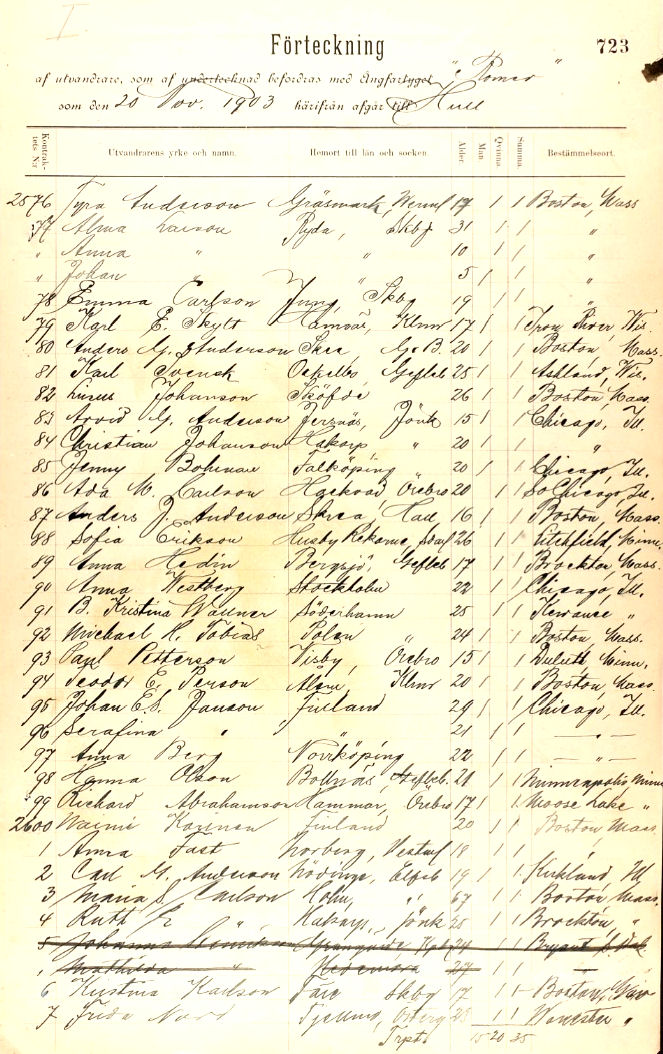 I
Förteckning
723
af utvandrare, som af undertecknad befordras med Ångfartyget "Romeo"
som den 20 Nov. 1903 härifrån afgår till Hull
Kontraktets N:r Utvandrarens yrke och namn. Hemort till län och socken. Ålder Man Qvinna Summa Bestämmelseort.
2576 Tyra Anderson Gräsmark, Werml 17 1 1 Boston, Mass
77 Alma Larson Ryda, Skbg 31 1 1 "
" Anna " " 10 1 1 "
" Johan " " 5 1 1 "
78 Emma Carlson Jung, Skbg 19 1 1 "
79 Karl E. Skytt Klmr 17 1 1 Iron River, Wis.
80 Anders G. Anderson G.B. 20 1 1 Boston, Mass.
81 Karl Svensk Ockelbo, Gefleb 25 1 1 Ashland Wis.
82 Linus Johanson Sköfde 26 1 1 Boston, Mass.
83 Arvid G. Anderson Jönk 15 1 1 Chicago, Ill.
84 Christian Johanson Hakarp " 20 1 1 "
85 Jenny Bohman Falköping 20 1 1 Chicago, Ill.
86 Ada M. Carlson Hackvad Örebro 20 1 1 So Chicago, Ill.
87 Anders J. Anderson Skrea, Hall 16 1 1 Boston, Mass.
88 Sofia Erikson Husby Rekarne, 26 1 1 Litchfield, Minn.
89 Anna Hedin Bergsjö, Gefleb 17 1 1 Brockton, Mass.
90 Anna Westberg Stockholm 22 1 1 Chicago, Ill.
91 B. Kristina Wallner Söderhamn 25 1 1 Kewanee "
92 Michael H. Tobias Polen " 24 1 1 Boston, Mass.
93 Carl Petterson Viby, Örebro 15 1 1 Duluth, Minn.
94 Teodor E. Person Alem, Klmr 20 1 1 Boston, Mass.
95 Johan E.S. Janson Finland 29 1 1 Chicago, Ill.
96 Serafina " " 21 1 1 — " —
97 Anna Berg Norrköping 22 1 1 — " —
98 Hanna Olson Bollnäs, Gefleb. 21 1 1 Minneapolis, Minn
99 Richard Abrahamson Hammar, Örebro 17 1 1 Moose Lake "
2600 Waimi Finland 20 1 1 Boston, Mass.
1 Anna Fast Norberg, Vestml 18 1 1 "
2 Carl G. Anderson Nödinge, Elfsb 19 1 1 Kirkland, Ill
3 Maria S. Carlson Holm, " 67 1 1 Boston, Mass.
4 Ruth E. " Jönk 25 1 1 Brockton, "
5 Johanna Grangärde, 24 1 1 Bryant
" Mathilda " Hedemora 27 — " —
6 Kristina Karlson Skbg 17 1 1 Boston,
7 Frida Nord Österg 28 1 1 Worcester "
Trpt 15 20 35